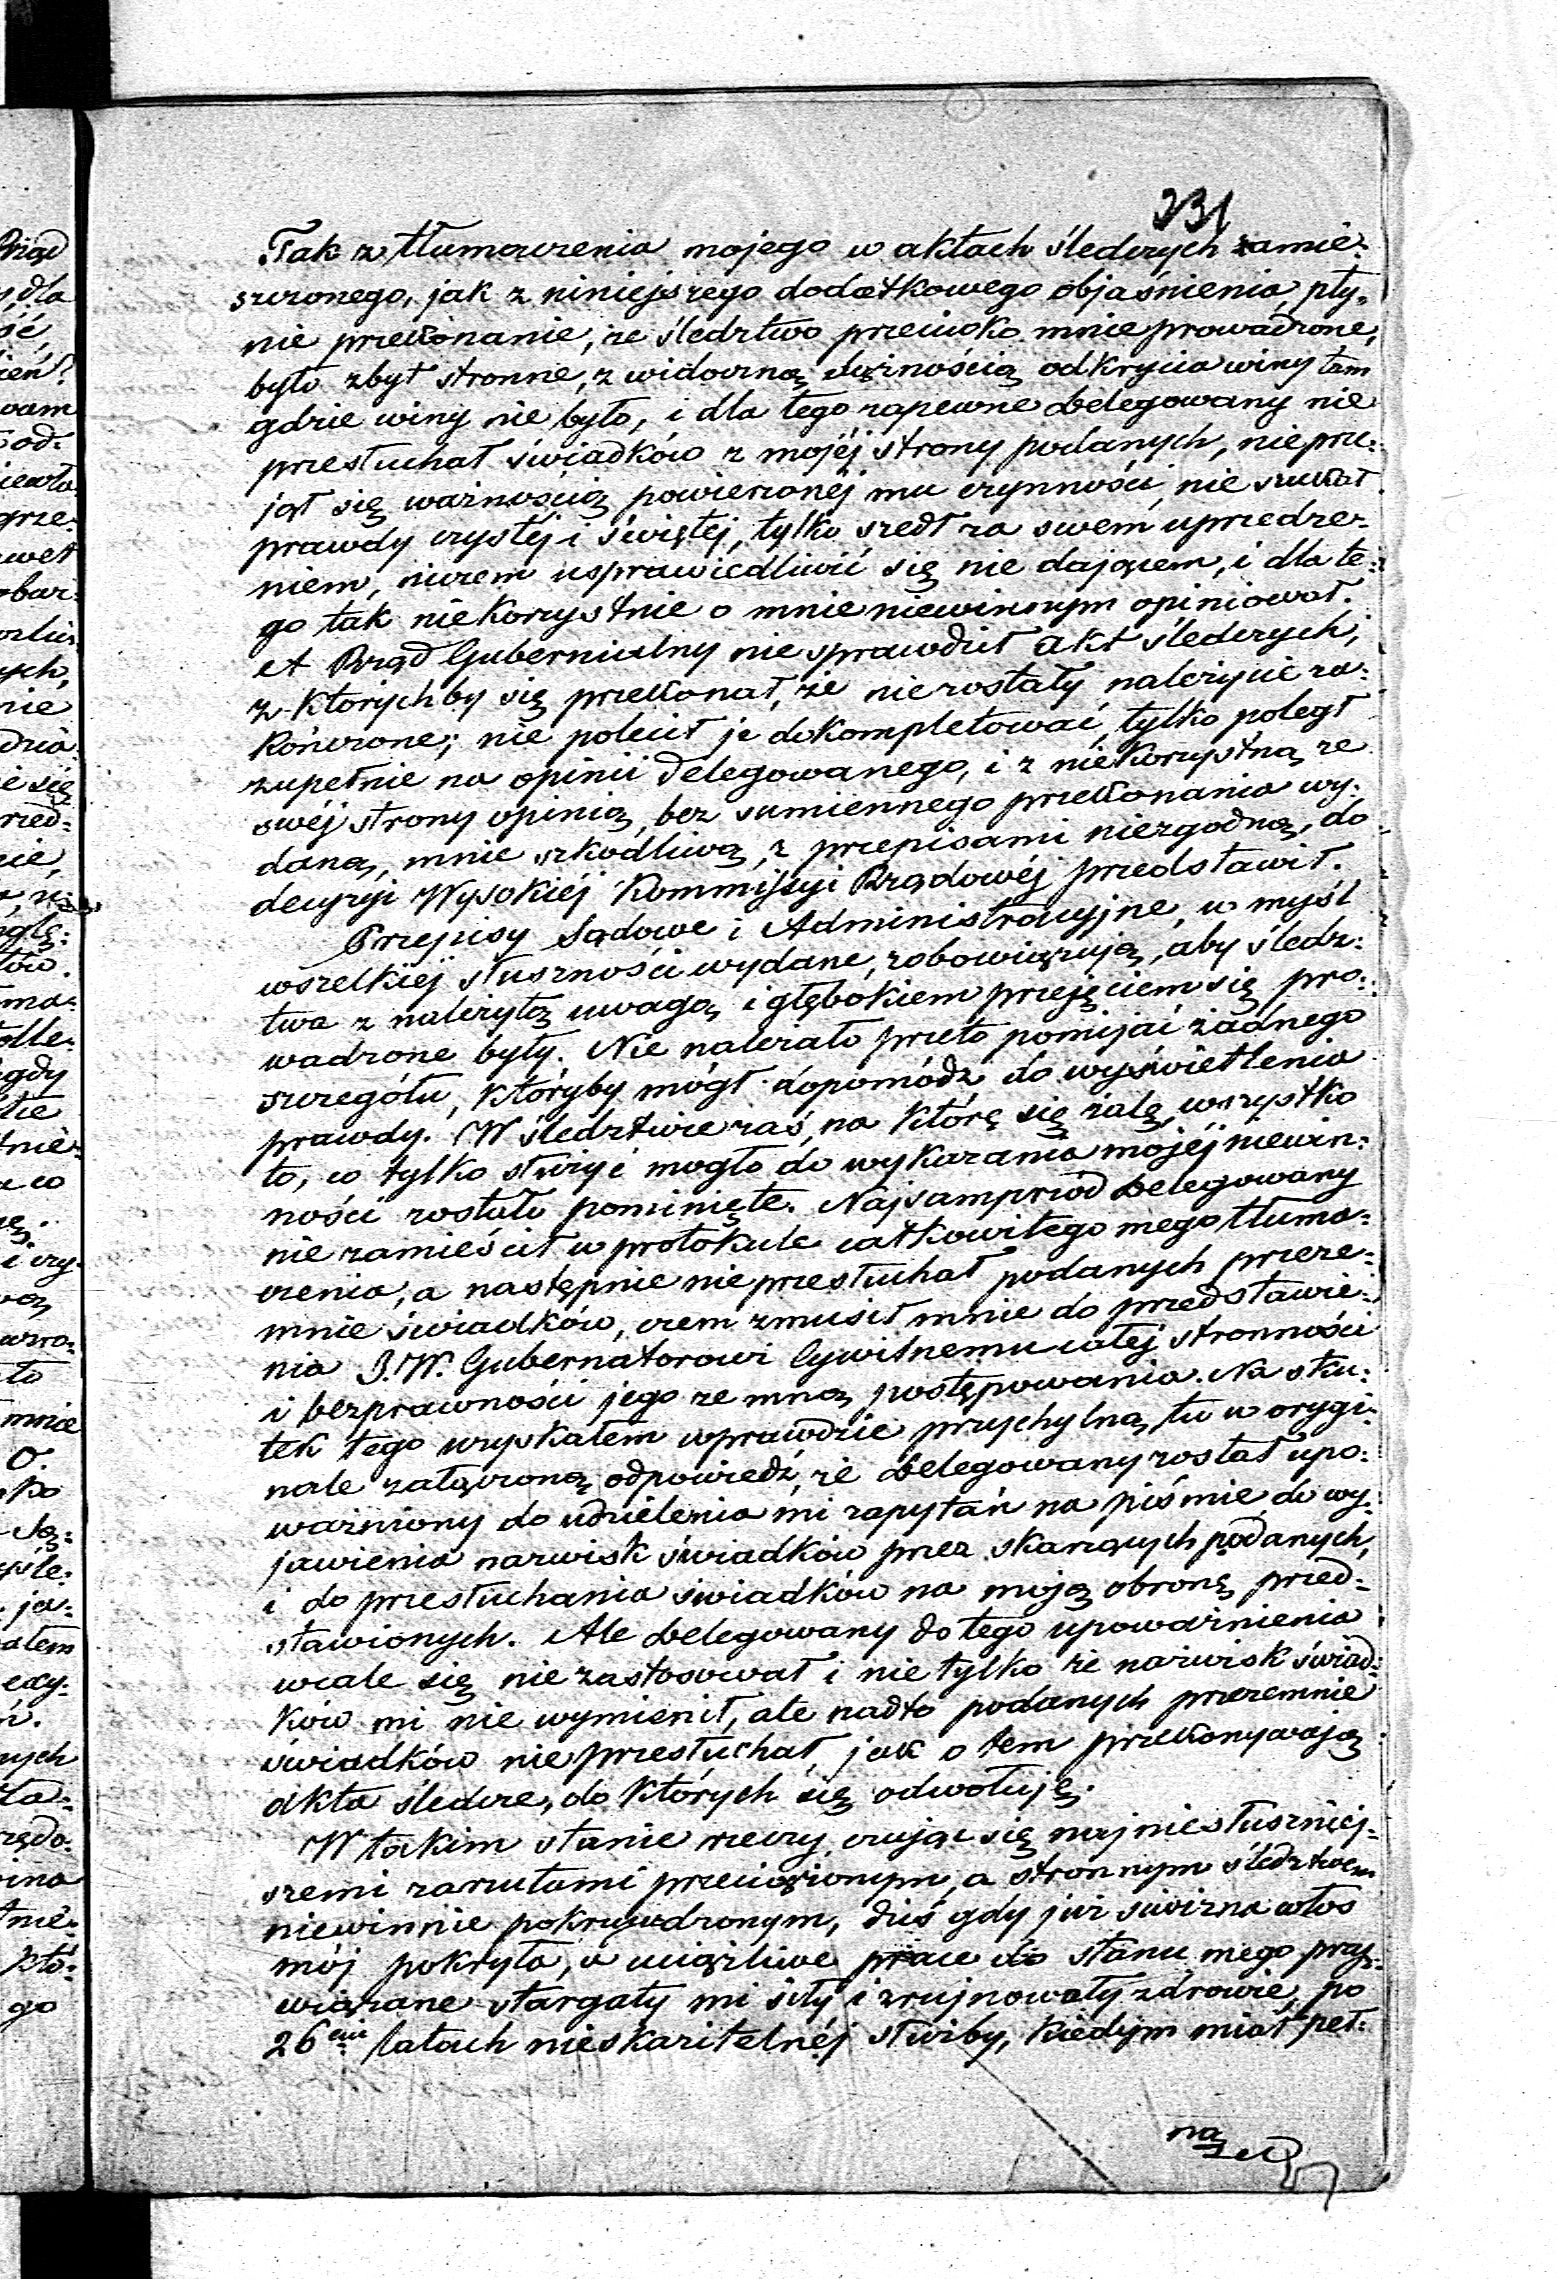 331
Tak z tłumaczenia mojego w aktach śledczych zamie-
szczonego, jak z niniejszego dodatkowego objaśnienia, pły-
nie przekonanie, że śledztwo przeciwko mnie prowadzone,
było zbyt stronne, z widoczną dążnością odkrycia winy tam
gdzie winy nie było, i dla tego zapewne Delegowany nie
przesłuchał świadków z mojéj strony podanych, nieprze-
jął się ważnością powierzonéj mu czynności, nie szukał
prawdy czystéj i świętéj, tylko szedł za swem uprzedze-
niem, niczem usprawiedliwić się nie dającem, i dla te-
go tak niekorzystnie o mnie niewinnym opiniował.
A Rząd Gubernialny nie sprawdził akt śledczych,
z których by się przekonał, że nie zostały należycie za-
kończone; nie polecił je dokompletować, tylko poległ
zupełnie na opinii Delegowanego, i z niekorzystną ze
swéj strony opinią, bez sumiennego przekonania wy-
daną, mnie szkodliwą, z przepisami niezgodną, do
decyzyi Wysokiéj Kommissyi Rządowéj przedstawił.
Przepisy Sądowe i Administracyjne, w myśl
wszelkiéj słuszności wydane, zobowiązują, aby śledz-
twa z należytą uwagą i głębokiem przejęciem się pro-
wadzone były. Nie należało przeto pomijać żadnego
szczegółu, któryby mógł dopomódz do wyświetlenia
prawdy. W śledztwie zaś, na które się żalę, wszystko
to, co tylko służyć mogło do wykazania mojéj niewin-
ności zostało pominięte. Najsamprzód Delegowany
nie zamieścił w protokule całkowitego mego tłuma-
czenia, a następnie nie przesłuchał podanych przeze-
mnie świadków, czem zmusił mnie do przedstawie-
nia J.W. Gubernatorowi Cywilnemu całej stronności
i bezprawności jego ze mną postępowania. Na sku-
tek tego uzyskałem wprawdzie przychylną, tu w orygi-
nale załączoną odpowiedź, że Delegowany został upo-
ważniony do udzielenia mi zapytań na piśmie, do wy-
jawienia nazwisk świadków przez skarżących podanych,
i do przesłuchania świadków na moją obronę przed-
stawionych. Ale Delegowany do tego upoważnienia
wcale się nie zastosował i nie tylko że nazwisk świad-
ków mi nie wymienił, ale nadto podanych przezemnie
świadków nie przesłuchał, jak o tem przekonywają
akta śledcze, do których się odwołuję.
W takim stanie rzeczy, czując się najniesłuszniej-
szemi zarzutami przeciążonym, a stronnym śledztwem
niewinnie pokrzywdzonym, dziś gdy już siwizna włos
mój pokryła, a uciążliwe prace do stanu mego przy-
wiązane stargały mi siły i zrujnowały zdrowie, po
26ciu latach nieskazitelnéj służby, kiedym miał peł-
ną